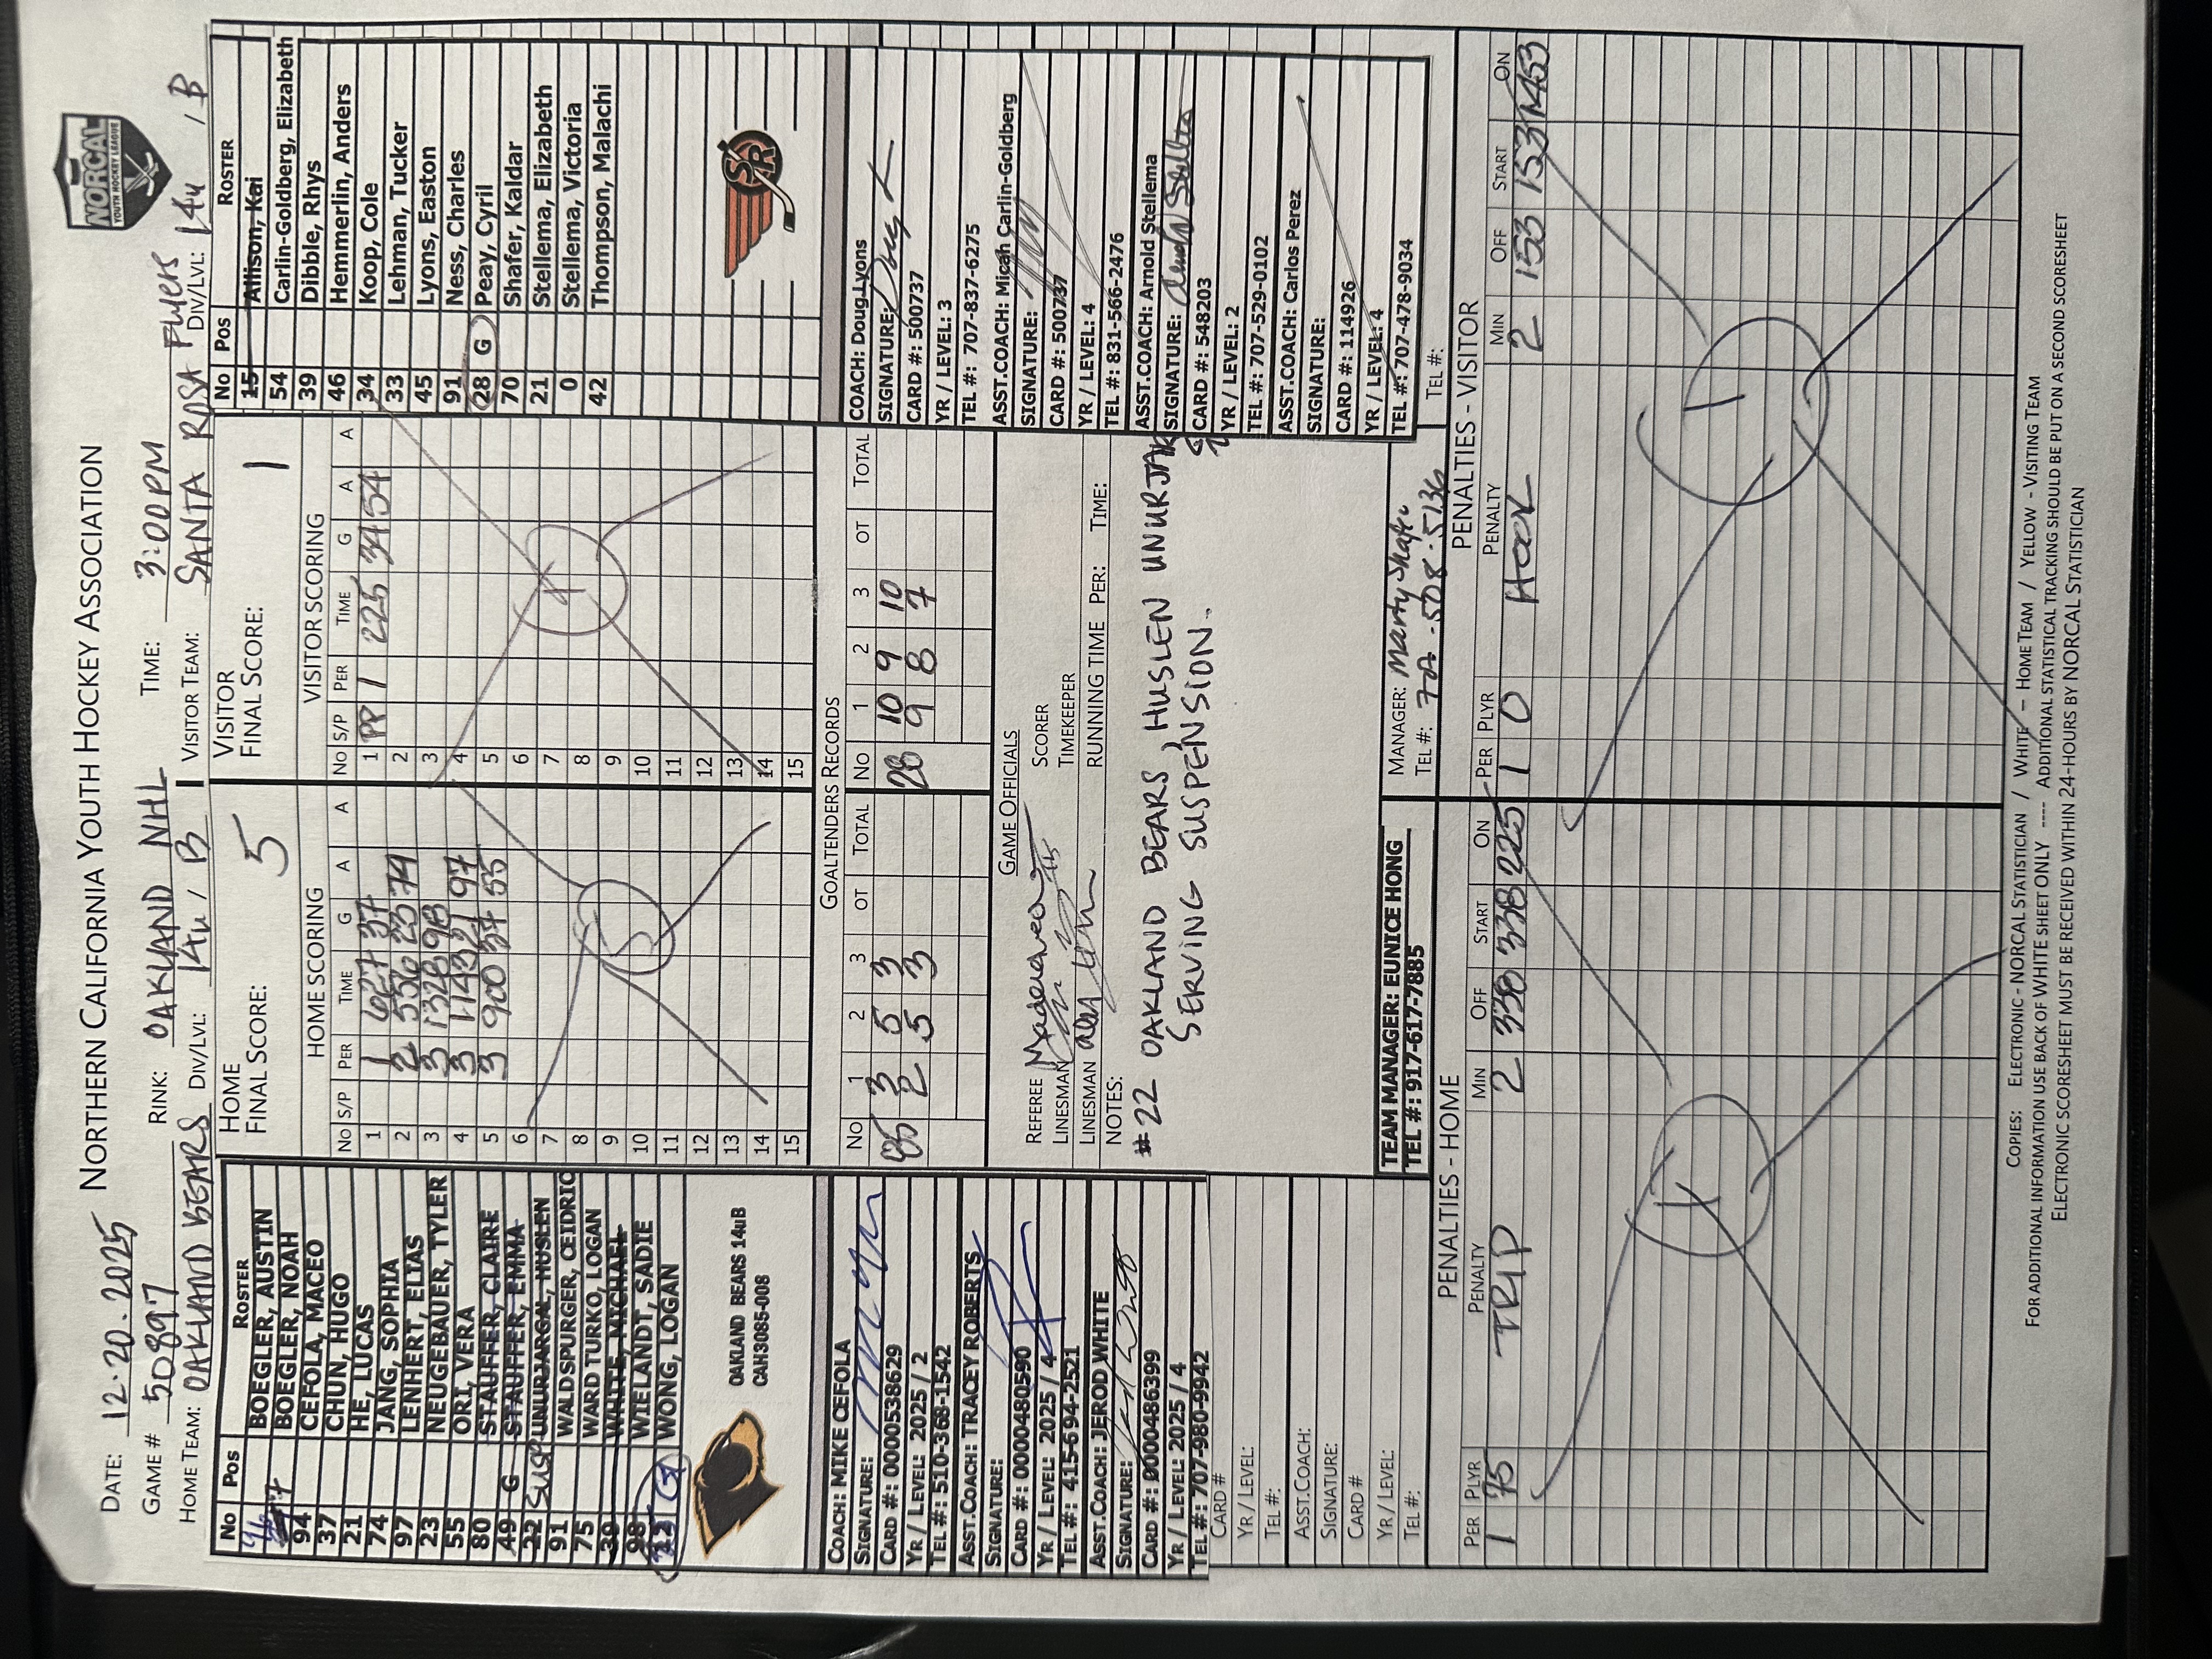 NORTHERN CALIFORNIA YOUTH HOCKEY ASSOCIATION
NORCAL
YOUTH HOCKEY LEAGUE
DATE: 12.20.2025
GAME # 50897 RINK: OAKLAND NHL TIME: 3:00PM
HOME TEAM: OAKLAND BEARS DIV/LVL: 14u / B VISITOR TEAM: SANTA ROSA FLYERS DIV/LVL: 14u / B
No Pos ROSTER
BOEGLER, AUSTIN
BOEGLER, NOAH
94 CEFOLA, MACEO
37 CHUN, HUGO
21 HE, LUCAS
74 JANG, SOPHIA
97 LENHERT, ELIAS
23 NEUGEBAUER, TYLER
55 ORI, VERA
80 STAUFFER, CLAIRE
49 G STAUFFER, EMMA
22 SUSP UNURJARGAL, HUSLEN
91 WALDSPURGER, CEIDRIC
75 WARD TURKO, LOGAN
39 WHITE, MICHAEL
98 WIELANDT, SADIE
WONG, LOGAN
OAKLAND BEARS 14uB
CAH3085-008
HOME
FINAL SCORE: 5
HOME SCORING
No S/P PER TIME G A A
1 1 627 37
2 2 536 23 74
3 3 1328 98
4 3 1143 21 97
5 3 900 37 55
6
7
8
9
10
11
12
13
14
15
5
VISITOR
FINAL SCORE: 1
VISITOR SCORING
No S/P PER TIME G A A
1 PP 1 225 34 54
2
3
4
5
6
7
8
9
10
11
12
13
14
15
1
No Pos ROSTER
15 Allison, Kai
54 Carlin-Goldberg, Elizabeth
39 Dibble, Rhys
46 Hemmerlin, Anders
34 Koop, Cole
33 Lehman, Tucker
45 Lyons, Easton
91 Ness, Charles
28 G Peay, Cyril
70 Shafer, Kaldar
21 Stellema, Elizabeth
0 Stellema, Victoria
42 Thompson, Malachi
SR
COACH: MIKE CEFOLA
SIGNATURE:
CARD #: 0000538629
YR / LEVEL: 2025 / 2
TEL #: 510-368-1542
ASST.COACH: TRACEY ROBERTS
SIGNATURE:
CARD #: 0000480590
YR / LEVEL: 2025 / 4
TEL #: 415-694-2521
ASST.COACH: JEROD WHITE
SIGNATURE:
CARD #: 0000486399
YR / LEVEL: 2025 / 4
TEL #: 707-980-9942
CARD #
YR / LEVEL:
TEL #:
ASST.COACH:
SIGNATURE:
CARD #
YR / LEVEL:
TEL #:
GOALTENDERS RECORDS
No 1 2 3 OT TOTAL No 1 2 3 OT TOTAL
3 5 3 28 10 9 10
2 5 3 9 8 7
GAME OFFICIALS
REFEREE SCORER
LINESMAN TIMEKEEPER
LINESMAN RUNNING TIME PER: TIME:
NOTES:
#22 OAKLAND BEARS, HUSLEN UNURJAR
SERVING SUSPENSION.
TEAM MANAGER: EUNICE HONG
TEL #: 917-617-7885
MANAGER: Marty Shafer
TEL #:
COACH: Doug Lyons
SIGNATURE:
CARD #: 500737
YR / LEVEL: 3
TEL #: 707-837-6275
ASST.COACH: Micah Carlin-Goldberg
SIGNATURE:
CARD #: 500737
YR / LEVEL: 4
TEL #: 831-566-2476
ASST.COACH: Arnold Stellema
SIGNATURE:
CARD #: 548203
YR / LEVEL: 2
TEL #: 707-529-0102
ASST.COACH: Carlos Perez
SIGNATURE:
CARD #: 114926
YR / LEVEL: 4
TEL #: 707-478-9034
TEL #:
PENALTIES - HOME
PER PLYR PENALTY MIN OFF START ON
1 75 TRIP 2 338 338 225
1
PENALTIES - VISITOR
PER PLYR PENALTY MIN OFF START ON
1 0 HOOK 2 153 153
1
COPIES: ELECTRONIC - NORCAL STATISTICIAN / WHITE - HOME TEAM / YELLOW - VISITING TEAM
FOR ADDITIONAL INFORMATION USE BACK OF WHITE SHEET ONLY ---- ADDITIONAL STATISTICAL TRACKING SHOULD BE PUT ON A SECOND SCORESHEET
ELECTRONIC SCORESHEET MUST BE RECEIVED WITHIN 24-HOURS BY NORCAL STATISTICIAN